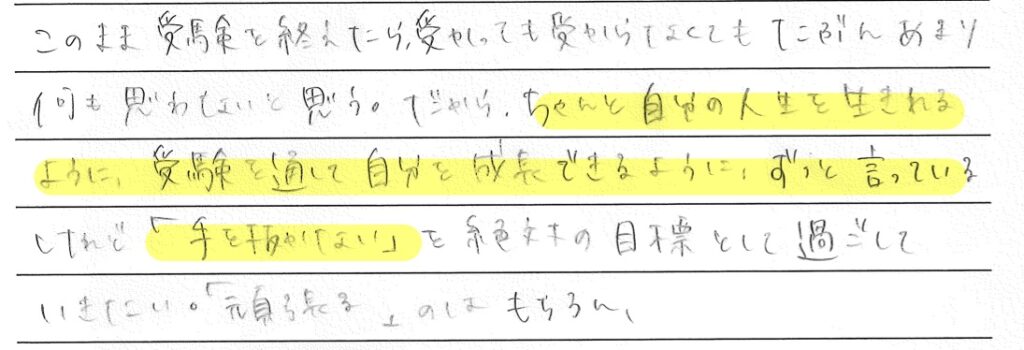 このまま受験を終えたら、受かっても受からなくてもたぶんあまり
何も思わないと思う。だから、ちゃんと自分の人生を生きれる
ように、受験を通して自分を成長できるように、ずっと言っている
けれど「手を抜かない」を絶対の目標として過ごして
いきたい。「頑張る」のはもちろん、